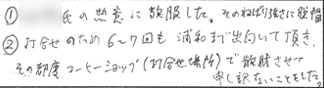 ① 氏の熱意に敬服した。そのねばり強さに脱帽
② 打合せのため6〜7回も浦和まで出向いて頂き、
その都度コーヒーショップ(打合せ場所)で散財させて
申し訳ないことをした。